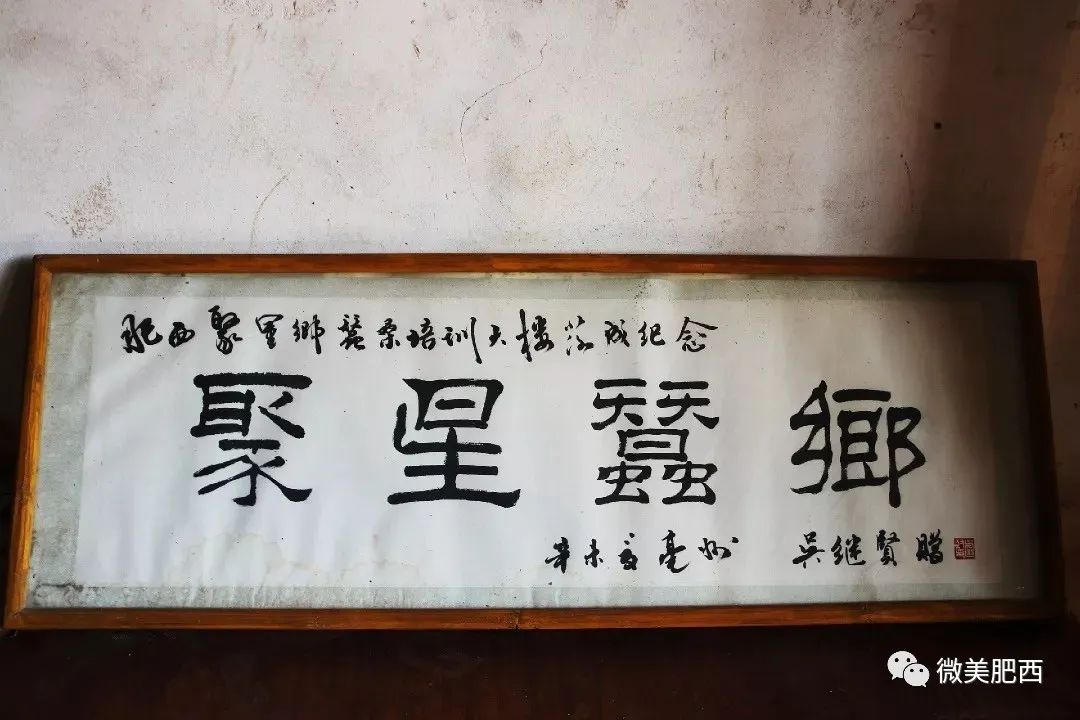 肥西聚星鄉蚕桑培训大楼落成纪念
聚星蠶鄉
辛未夏亳州 吴继賢贈
微美肥西